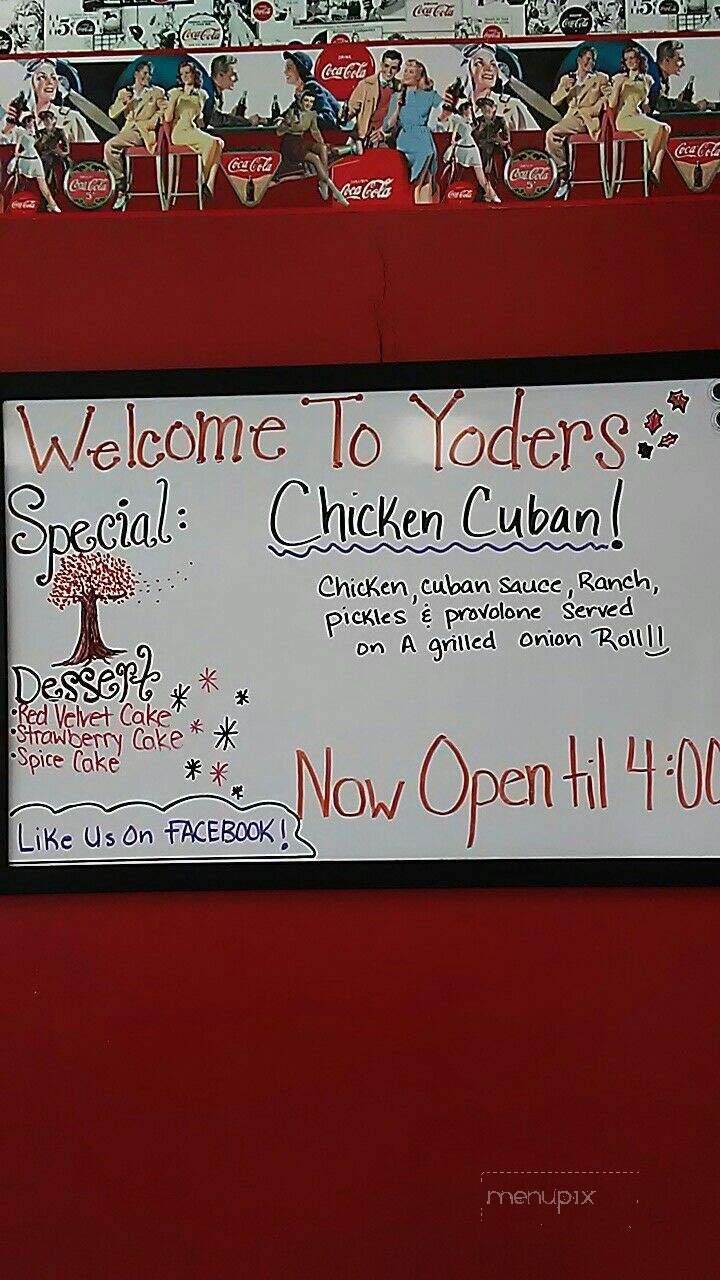 Coca-Cola
Coca-Cola
DRINK
Coca-Cola
Coca-Cola
Coca-Cola
Coca-Cola
Coca-Cola
Coca-Cola
Coca-Cola
Welcome To Yoders
Special:
Chicken Cuban!
Chicken, cuban sauce, Ranch,
pickles & provolone Served
on A grilled onion Roll!!
Dessert
•Red Velvet Cake
•Strawberry Cake
•Spice Cake
Now Open til 4:00
Like Us On FACEBOOK!
menupix